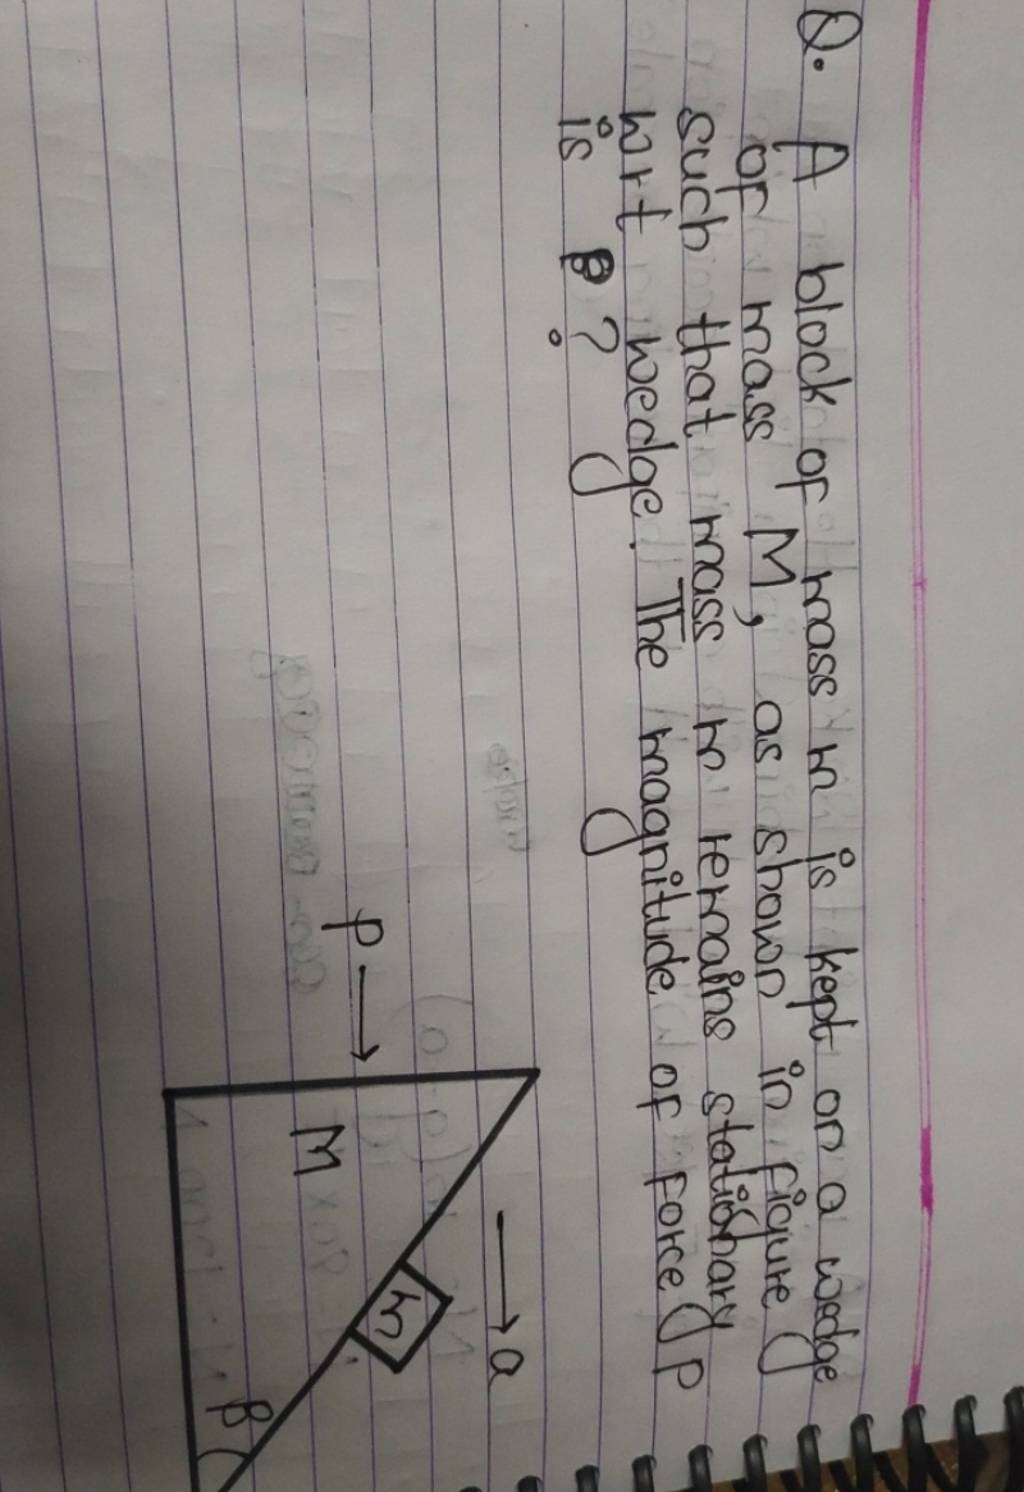 Q. A block of mass m is kept on a wedge
of mass M, as shown in figure
such that mass m remains stationary
wrt wedge. The magnitude of force P
is P?
→ a
P →
M
m
β